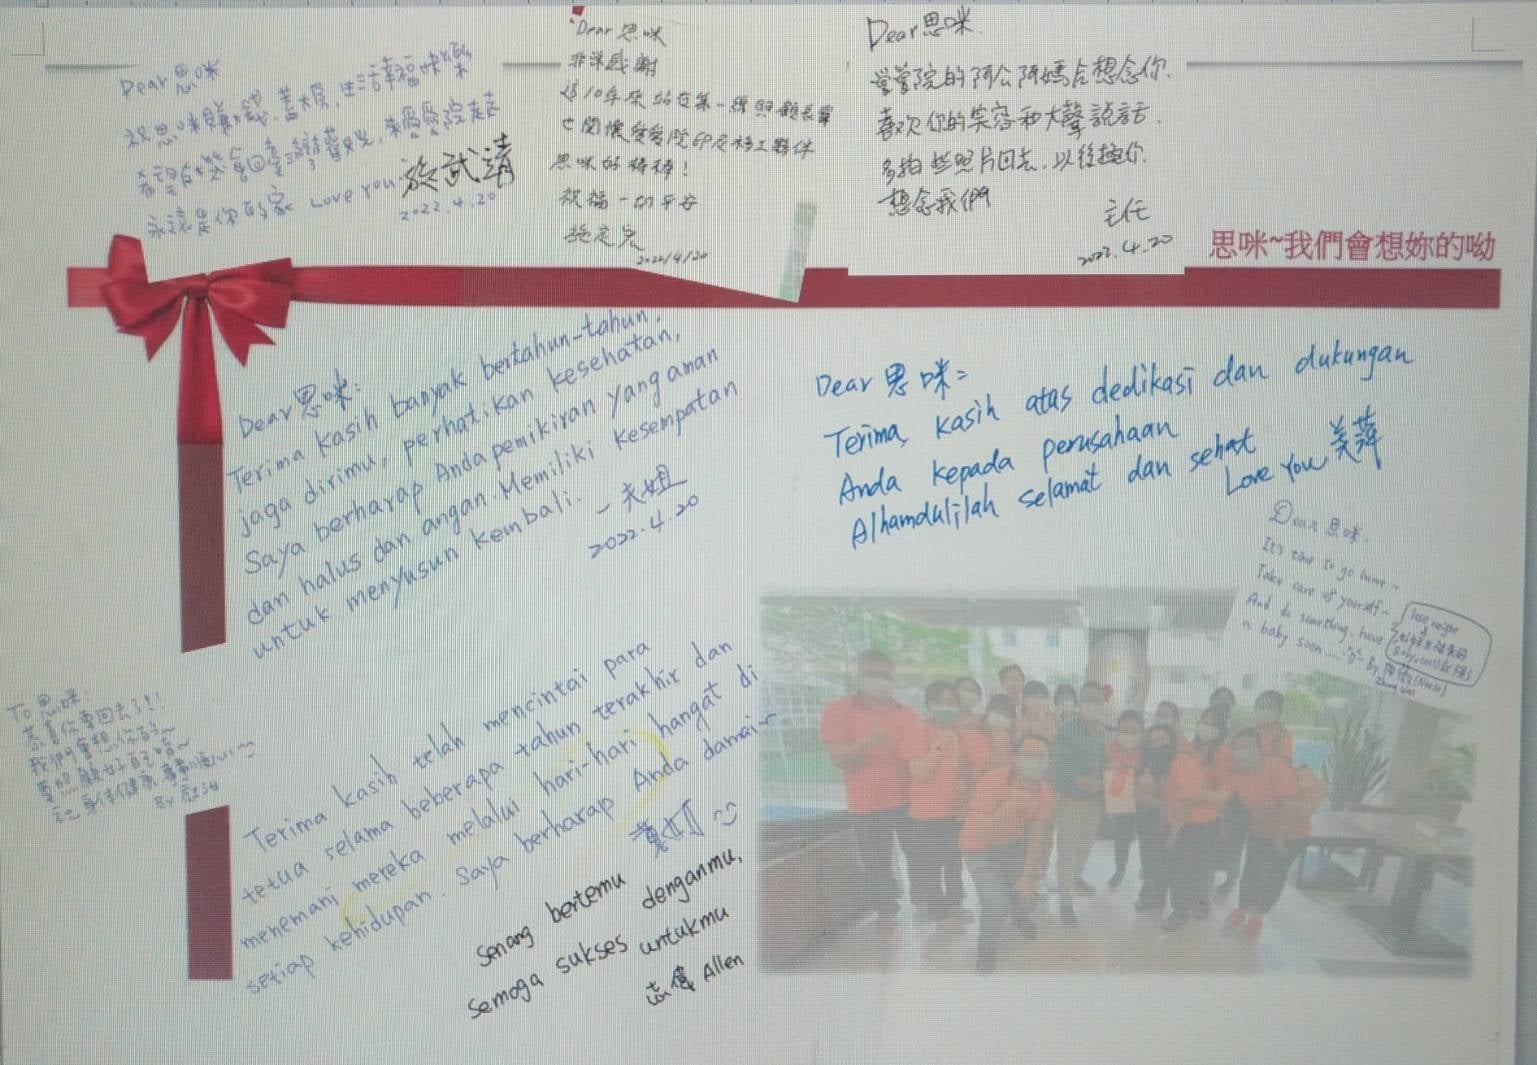 Dear思咪
祝思咪賺大錢,蓋大房,生活幸福快樂
希望 會回臺灣 ,來愛愛院走走
永遠是你的家 Love you
施武靖
2022.4.20
Dear 思咪
非常感謝
這10年來站在第一線照顧長輩
也關懷愛愛院印尼移工夥伴
思咪好棒棒!
祝福一切平安
2022/4/20
Dear思咪.
愛愛院的阿公阿媽會想念你.
喜歡你的笑容和大聲說話.
多拍些照片回去,以後換你
想念我們
主任
2022.4.20
思咪~我們會想妳的呦
Dear思咪:
Terima kasih banyak bertahun-tahun.
jaga dirimu, perhatikan kesehatan,
Saya berharap Anda pemikiran yang aman
dan halus dan angan. Memiliki kesempatan
untuk menyusun kembali.
2022.4.20
Dear 思咪=
Terima kasih atas dedikasi dan dukungan
Anda kepada perusahaan
Alhamdulilah selamat dan sehat
Love you 美萍
Dear 思咪.
It's time to go home~
Take care of yourself~
And do something, have
a baby soon.... By (Nurse)
lose weight
To 思咪:
恭喜你要回去了!!
我們會想你的~
要照顧好自己哈~
身体健康,事事順心
By
Terima kasih telah mencintai para
tetua selama beberapa tahun terakhir dan
menemani mereka melalui hari-hari hangat di
setiap kehidupan. Saya berharap Anda damai~
senang bertemu denganmu,
semoga sukses untukmu
志偉 Allen